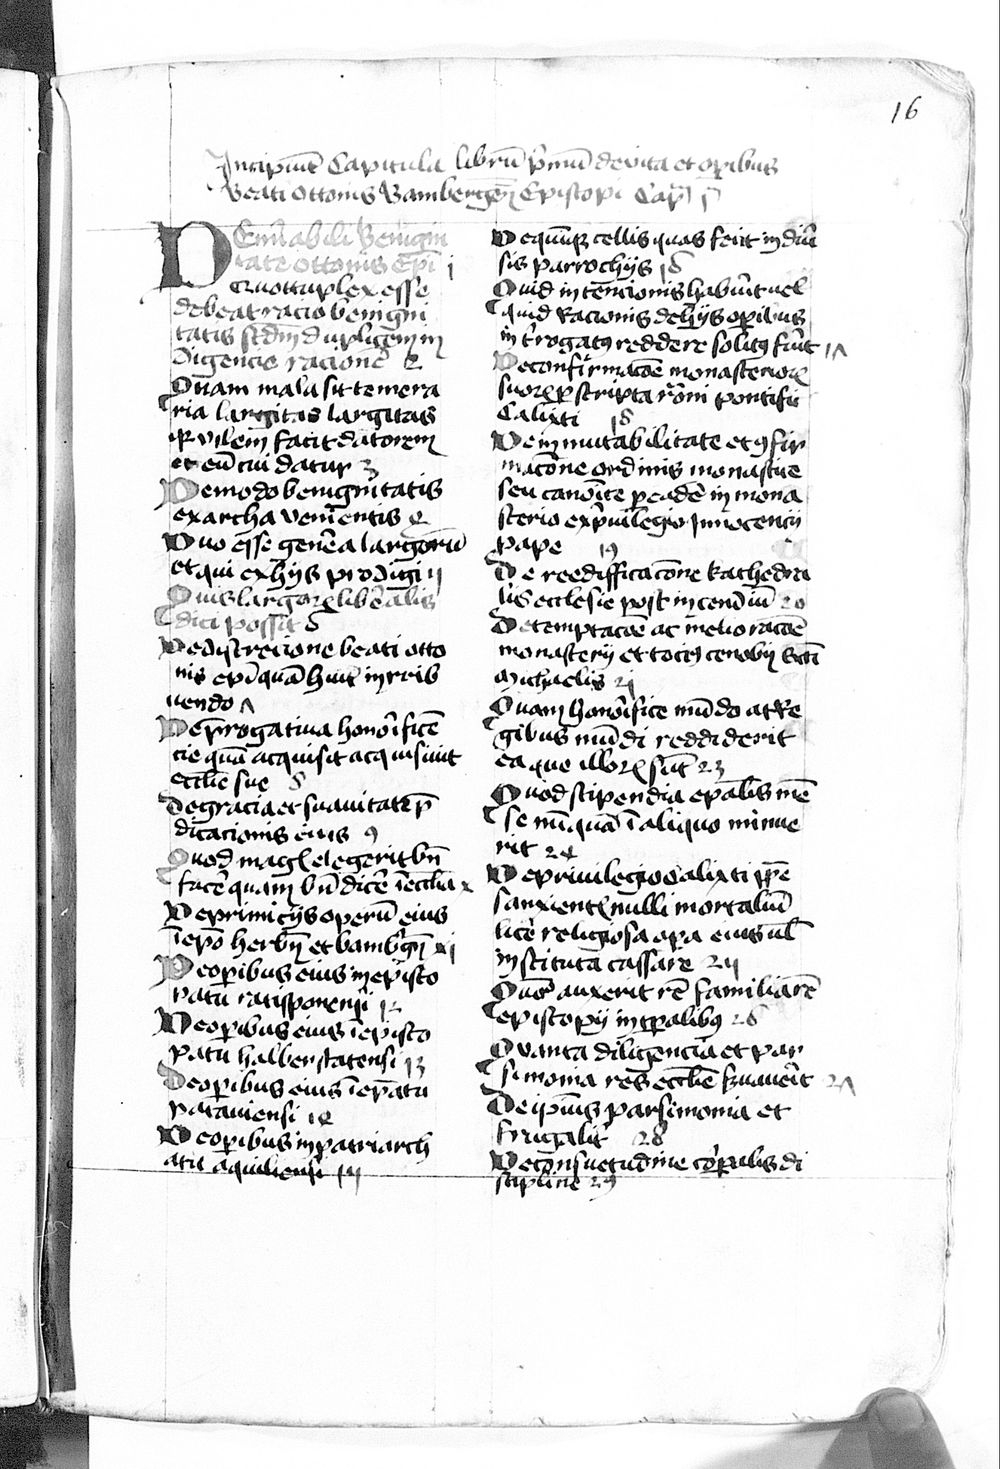 16
Incipiu͂t Capitula libru͂ p͂mu͂ de vita et op̲ibus
Beati Ottonis Bambergen͂ Episcopi Cap͂
DEmirabili Benigni
tate Ottonis Ep͂i 1
Quottuplex esse
debeat racio benigni
tatis scd͂m duplicem in
digencie racione͂ 2
Quam mala sit temera
ria largitas largitas
q͂ vilem facit datorem
et eu͂ cui datur 3
De modo benignitatis
ex archa venientis 4
Duo esse gen͂a largoru͂
et qui ex hijs prodigi 5
Quis largorum lib͂alis
dici possit 6
De discrecione beati otto
nis ep͂i qua͂ h͂uit in trib
uendo 7
De p͂rogatiua honorifice͂
cie qua͂ acquisit acquisiuit
eccl͂ie sue 8
De gracia et suauitate p͂
dicacionis eius 9
Quod mag͂ elegerit bn͂
face͂ quam bn͂ dice͂ i͂ eccl͂ia x
De primicijs operu͂ eius
i͂ ep͂o herbn͂ et bamb͂gn͂ xi
De op̲ibus eius in episco
patu ratisponensi 12
De op̲ibus eius i͂ episco
patu͂ halberstatensi 13
De op̲ibus eius i͂ ep͂atu
pataviensi 14
De op̲ibus in patriarch
atu aquiliensi 15
De quinq͂ cellis quas fecit in diu͂
sis parrochijs 16
Quid intencionis habu͂it uel
quid racionis de hijs op̲ibus
int͂rogatus reddere solitus fu͂it 17
De confirmac͂oe monasteriorum
suorum p̲ scripta ro͂ni pontifi͂
Calixti 18
De inmutabilitate et ꝯfir
mac͂one ordinis monastice
seu canoi͂ce p̲eade͂ in mona
sterio ex p͂uilegio Innocencij
pape 19
De reedifficac͂one kathedra
lis ecclesie post incendiu͂ 20
De temptac͂oe ac meliorac͂oe
monasterij et tocius cenobij Sct͂i
Michaelis 21
Quam honorifice mu͂do at Re
gibus mu͂di reddiderit
ea que illorum su͂t 23
Quod stipendia ep͂alis me͂
se nu͂qua͂ i͂ aliquo minue
rit 24
De priuilegio Calixti pp͂e
sanxientis nulli mortaliu͂
lice͂ religiosa op̲a eius ul͂
instituta cassare 25
Quo͂ auxerit re͂ familiare͂
episcopij in tp͂alibus 26
Quanta diligencia et par
simonia res eccl͂ie s͂uauerit 27
De ipsius parsimonia et
frugalit͂ 28
De consuetudine corp̲alis di
scipline 29